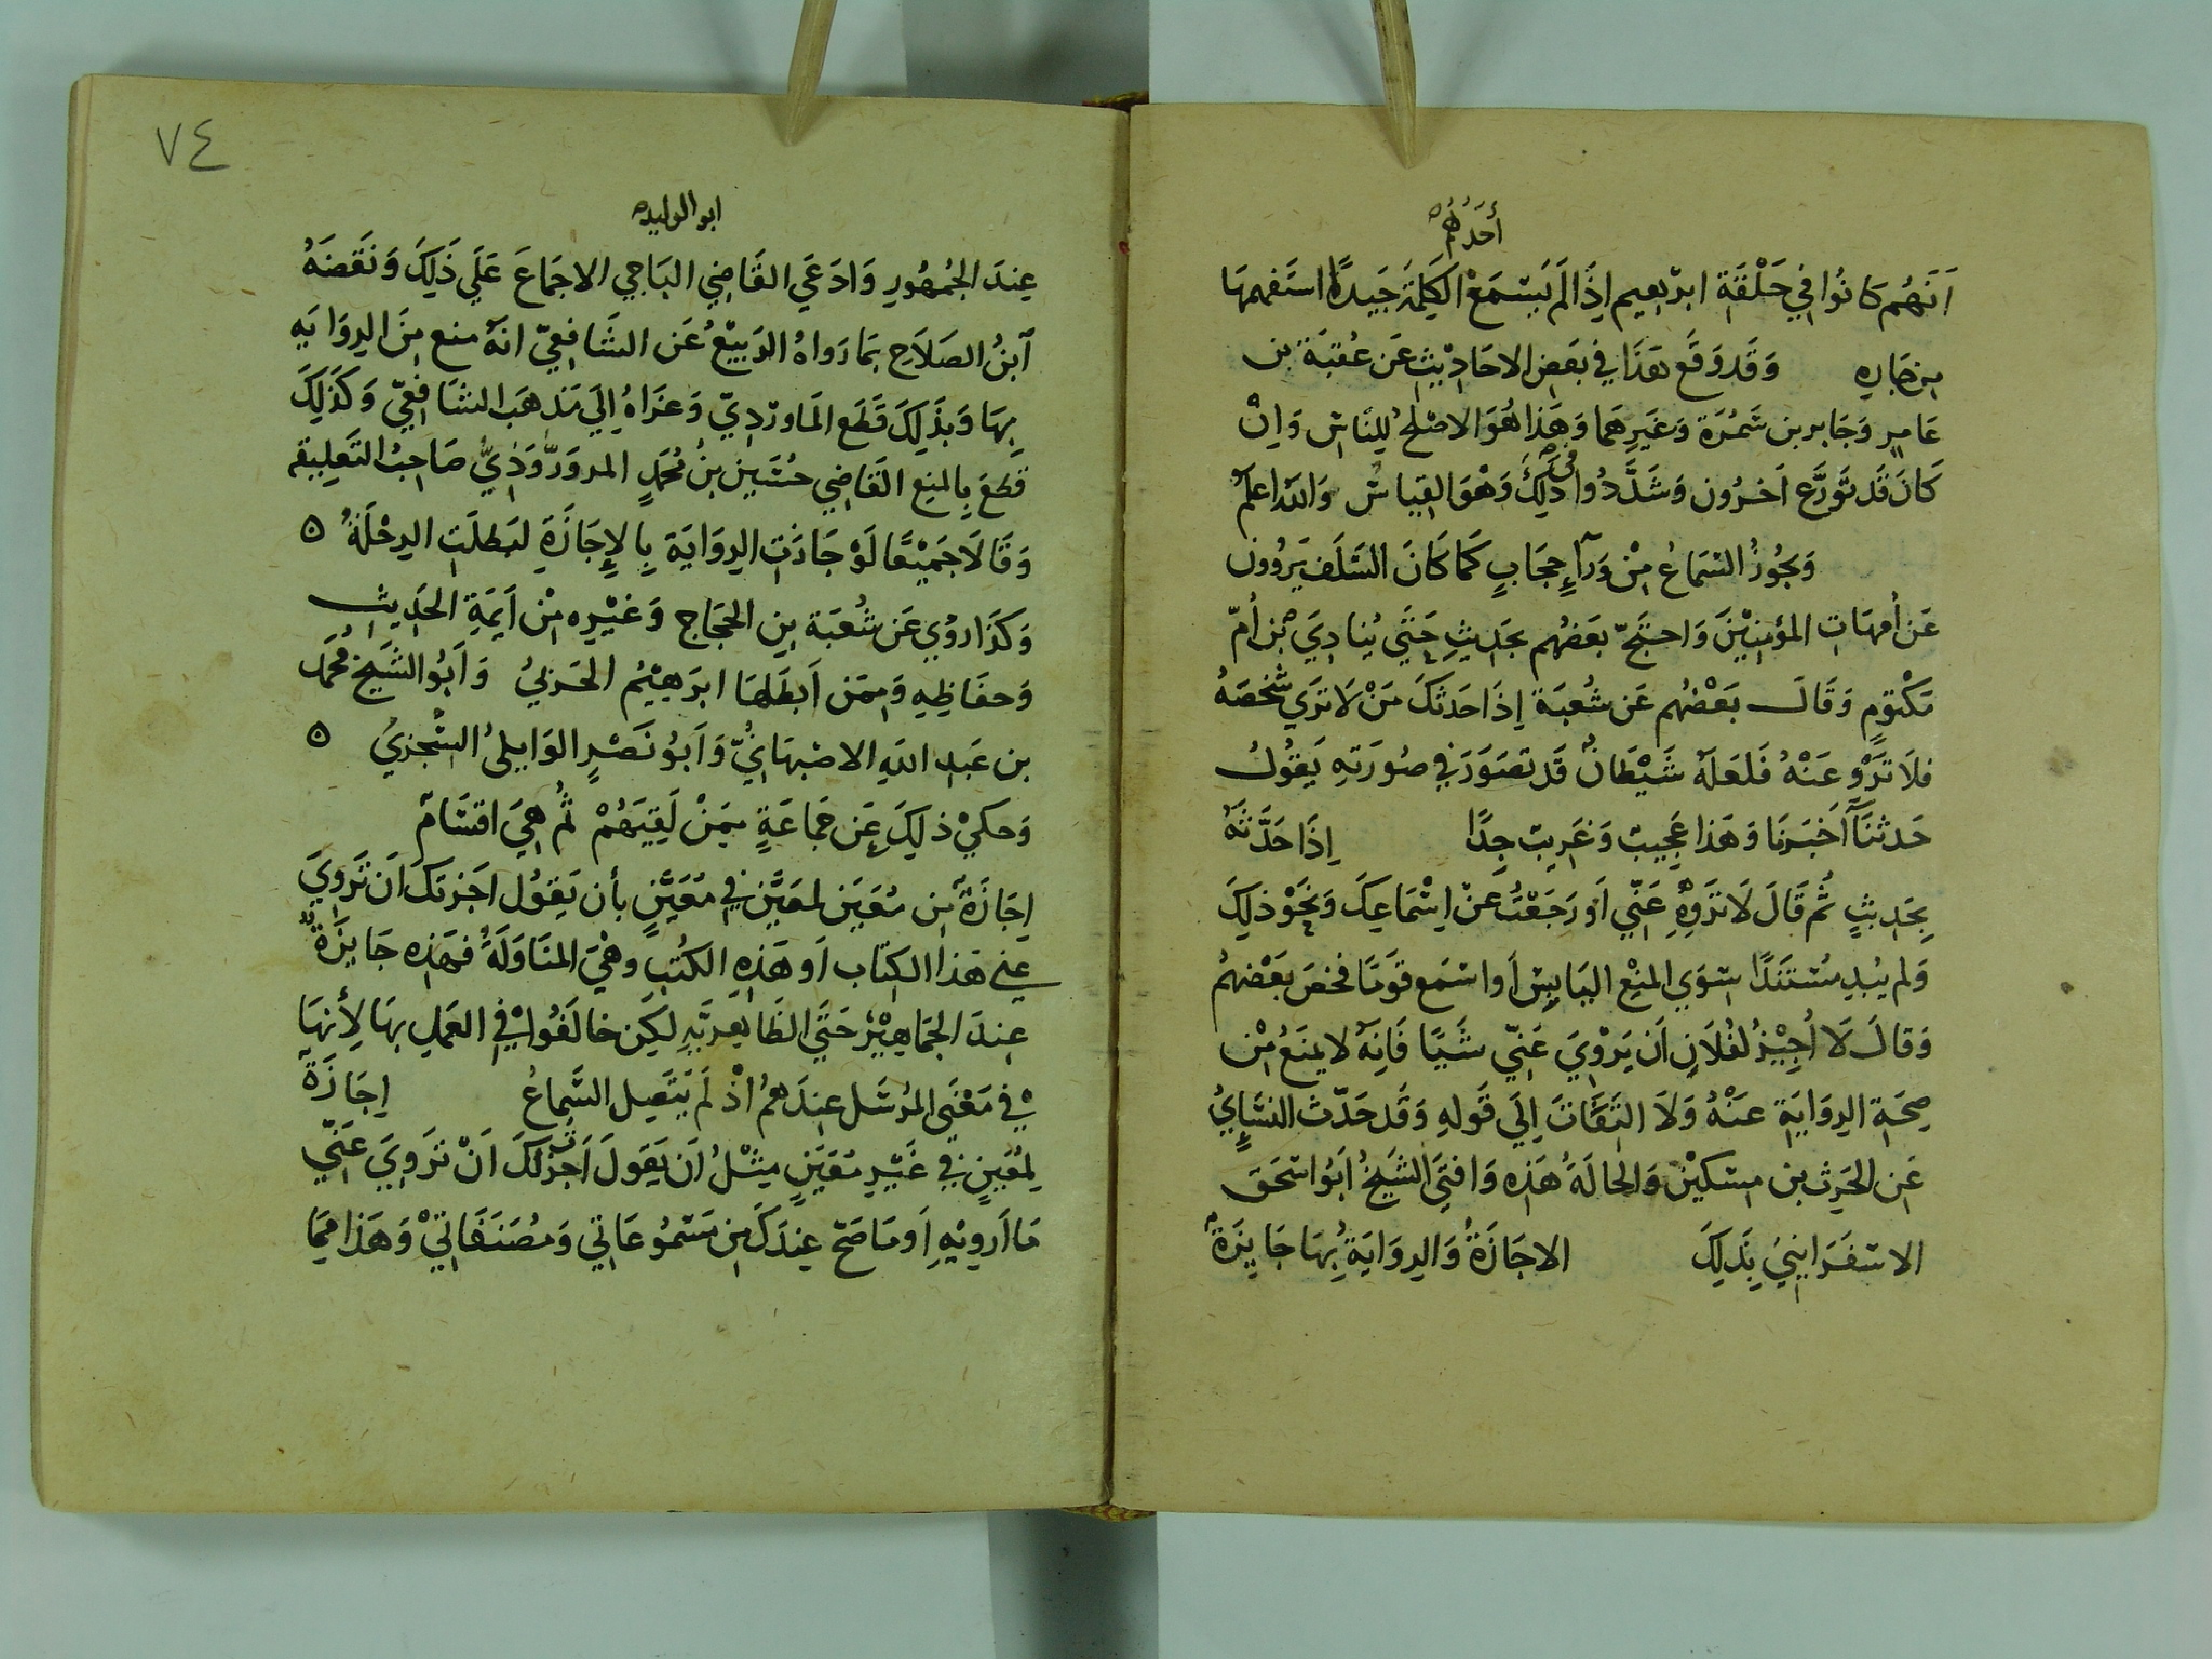 أَحَدُهُم
اَنَّهُم كَانُوا فِي حَلْقَةِ ابرٰهيم اِذَا لَم يَسْمَعْ الكَلِمَة جَيدةً استَفهمهَا
مِن جَارِهِ وَقَد وَقَع هَذَا فِي بَعضِ الاحَادِيثِ عَن عُقبَة بن
عَامِرٍ وَجَابر بن سَمُرَة وَغَيرِهمَا وَهَذَا هُوَ الاصْلحُ لِلنَاسِ وَاِنْ
كَانَ قَد تَورَّع اَخرُون وَشَدَّدُوا في ذَلِكَ وَهْوَ القِيَاسُ وَالله اعلم
وَيجُوزُ السَمَاعُ مِنْ وَرَآءِ حِجَابٍ كَمَا كَانَ السَلَف يَروُون
عَن أمهَاتِ المؤمِنِيْنَ وَاحتَجّ بعَضُهم بحَدِيثِ حَتَى يُنَادِيَ بن أُمّ
مَكْتومٍ وَقَالَ بَعْضُهم عَن شُعبَة اِذَا حَدثَكَ مَنْ لَا تَرَي شَخصَهُ
فلَا تَرْوِ عَنْهُ فَلعَلهُ شَيْطَانٌ قَد تصَوَرَ فِي صُورَتِهِ يَقُولُ
حَدثنَا اَخبَرنَا وَهَذا عَجِيبٌ وَغَرِيبٌ جِدًا اِذَا حَدَّثَهُ
بِحَدِيثٍ ثُم قَالَ لَا تَروِهِ عَنّي اَو رَجَعْتُ عَنْ اِسْمَاعِكَ وَنَحَوْ ذلِكَ
وَلم يبُدِ مُسْتَنَدًا سِوَي المنْعِ اليَابِسِ أَو اسْمَع قَومًا فخصَ بَعْضهُم
وَقَالَ لَا أُجِيْزُ لفُلَانٍ اَن يَرْوِيَ عَنّي شَيًا فَانِهُ لا يمنَعُ مِنْ
صِحَةِ الرِوَايَةِ عَنْهُ وَلَا التِفَاتَ اِلَي قَولهِ وَقَد حَدّثَ النسَايُ
عَن الحَرِث بن مسْكيْن وَالحالَةُ هَذِه وَافتَى الشَيخُ اَبُو اسْحَق
الاسْفَرَاينِيُ بِذَلِكَ الاجَازَةُ وَالرِوَايَةُ بِهَا جَايِزَةٌ
٧٤
ابو الوليد
عِندَ الجُمهُورِ وَادَعَي القَاضِي البَاجِي الاجمَاعَ عَلَي ذَلِكَ وَنَقَضَهُ
ابنُ الصَلَاحِ بمَا رَوَاهُ الرَبِيْعُ عَن الشَافِعيّ انَهُ منع مِنَ الرِوَايَهِ
بِهَا وَبذَلِكَ قَطَع المَاورَدِيّ وَعزَاهُ اِلَي مَذهَب الشَافِعيّ وَكَذَلِكَ
قطعَ بِالمنعِ القَاضِي حُسَين بنُ مُحَمَدٍ المرورّوَذِيُّ صَاحِبُ التَعلِيقه
وَقَالَا جَميْعًا لَوْ جَازَتِ الرِوَايَة بِالاِجَازَةِ لبَطلَتِ الرِحْلَةُ ٥
وَكَذَا رُوي عَن شُعبَة بِنِ الحجَاج وَغَيْرِه مِنْ اَيمَةِ الحَدِيثِ
وَحفَاظِهِ وَممَن اَبطَلهَا ابرَهيْم الحَربيُ وَاَبُو الشَيخ مُحمَد
بن عَبدِ اللهِ الاصْبهَانيُّ وَاَبُو نَصْرٍ الوَايليُ السْجزيُ ٥
وَحكيْ ذلِكَ عَن جمَاعَةٍ ممَنْ لَقِيَهُمْ ثُم هِيَ اقسَامٌ
اِجَازَةٌ مِن مُعَيَن لمعَيَّن فِي مُعَيّنٍ بأن يَقوُل اجَزتكَ اَن تَروِيَ
عني هَذَا الكِتَاب اَو هَذِهِ الكُتُبِ وهْيَ المنَاوَلَةُ فهَذِه جَايزَةٌ
عِندَ الجمَاهِيْر حَتَى الظَاهِرِيَهِ لكِن خالَفُواْ فِي العَملِ بهَا لأِنهَا
فِي مَعْنَى المُرسَل عِندَهمْ اذْ لَم يَتَصِل السَّماعُ اِجَازَةٌ
لِمُعَينٍ فِي غَيْرِ مُعَيَنٍ مِثْلُ اَن يَقوَلَ اَجَزتُ لكَ اَنْ تَروِيَ عَنّي
مَا اَروِيْهِ اَو مَا صَحّ عِندَكَ مِن مَسْمُوعَاتي وَمُصَنَفَاتِيْ وَهَذا ممَا